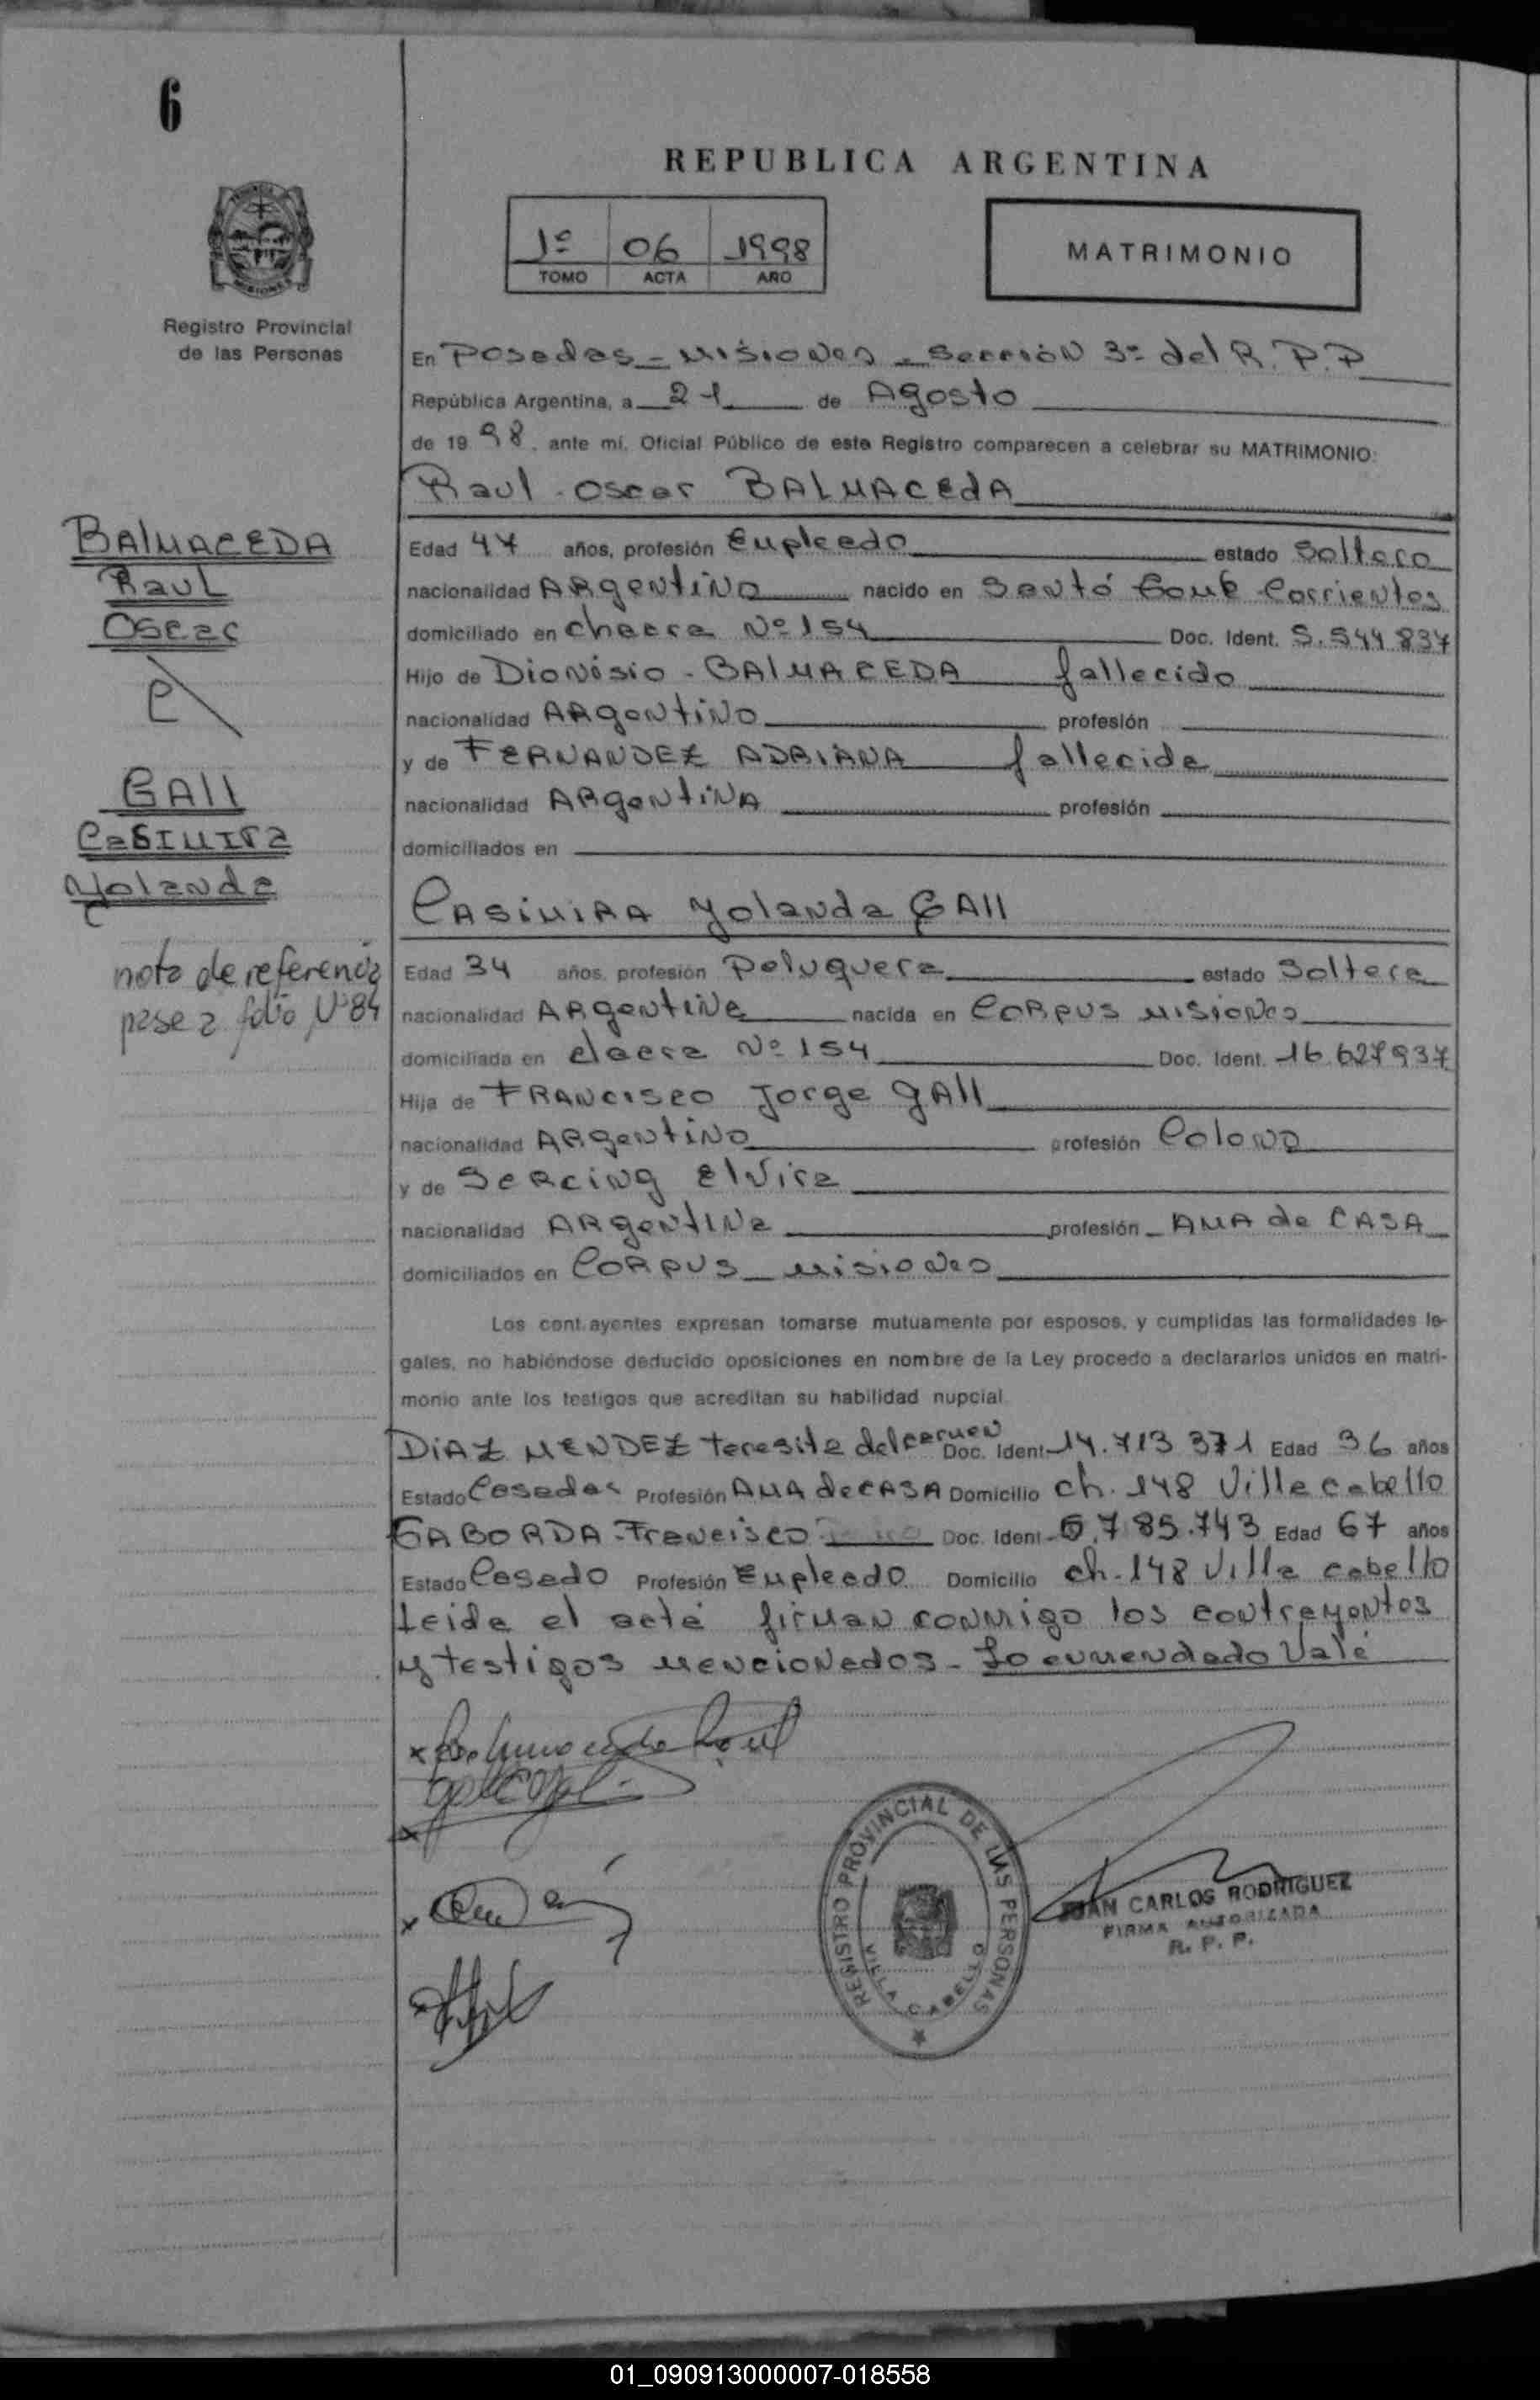 6
REPUBLICA ARGENTINA
1º 06 1998
TOMO ACTA AÑO
MATRIMONIO
Registro Provincial
de las Personas
En Posadas - Misiones - Sección 3º del R.P.P
República Argentina, a 21 de Agosto
de 19 98, ante mí, Oficial Público de este Registro comparecen a celebrar su MATRIMONIO:
Raul Oscar BALMACEdA
BAlMACEDA
Raul
Oscar
Edad 47 años, profesión Empleado estado Soltero
nacionalidad ARgentino nacido en Santo Tomé Corrientes
domiciliado en Chacra Nº 154 Doc. Ident. 5.544.837
Hijo de Dionisio - BAlMACEDA fallecido
nacionalidad ARgentino profesión
y de FERNANDEZ ADRIANA fallecida
nacionalidad ARgentiNA profesión
domiciliados en
GAll
Casimira
Yolanda
CASiMiRA Yolanda GAll
nota de referencia
pase a folio Nº 84
Edad 34 años, profesión Peluquera estado Soltera
nacionalidad ARgentina nacida en CORpus Misiones
domiciliada en Chacra Nº 154 Doc. Ident. 16.627937
Hija de FRANCISCO Jorge gAll
nacionalidad ARgentino profesión Colono
y de Elvira
nacionalidad ARgentina profesión AMA de CASA
domiciliados en CORpus Misiones
Los cont.ayentes expresan tomarse mutuamente por esposos, y cumplidas las formalidades le-
gales, no habiéndose deducido oposiciones en nombre de la Ley procedo a declararlos unidos en matri-
monio ante los testigos que acreditan su habilidad nupcial
DiAZ MENDEZ teresita del carmen Doc. Ident. 14.713 371 Edad 36 años
Estado Casada Profesión AMA de CASA Domicilio ch. 148 Villa cabello
GABORDA - Francisco Doc. Ident. 5.785.743 Edad 67 años
Estado Casado Profesión Empleado Domicilio ch. 148 Villa cabello
Leida el acta firman conmigo los contrayentes
y testigos mencionados - Lo enmendado Vale
REGISTRO PROVINCIAL DE LAS PERSONAS
VILLA CABELLO
JUAN CARLOS RODRIGUEZ
FIRMA AUTORIZADA
R. P. P.
01_090913000007-018558